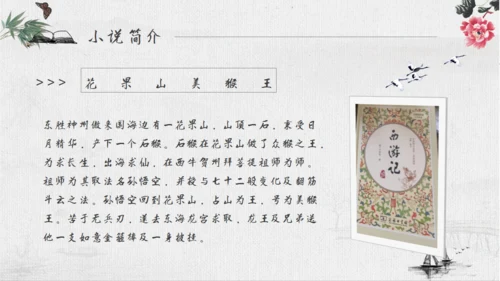 小说简介
>>> 花果山美猴王
东胜神州傲来国海边有一花果山，山顶一石，秉受日
月精华，产下一个石猴。石猴在花果山做了众猴之王，
为求长生，出海求仙，在西牛贺州拜菩提祖师为师。
祖师为其取法名孙悟空，并授与七十二般变化及翻筋
斗云之法。孙悟空回到花果山，占山为王，号为美猴
王。苦于无兵刃，遂去东海龙宫求取，龙王及兄弟送
他一支如意金箍棒及一身披挂。
西游记